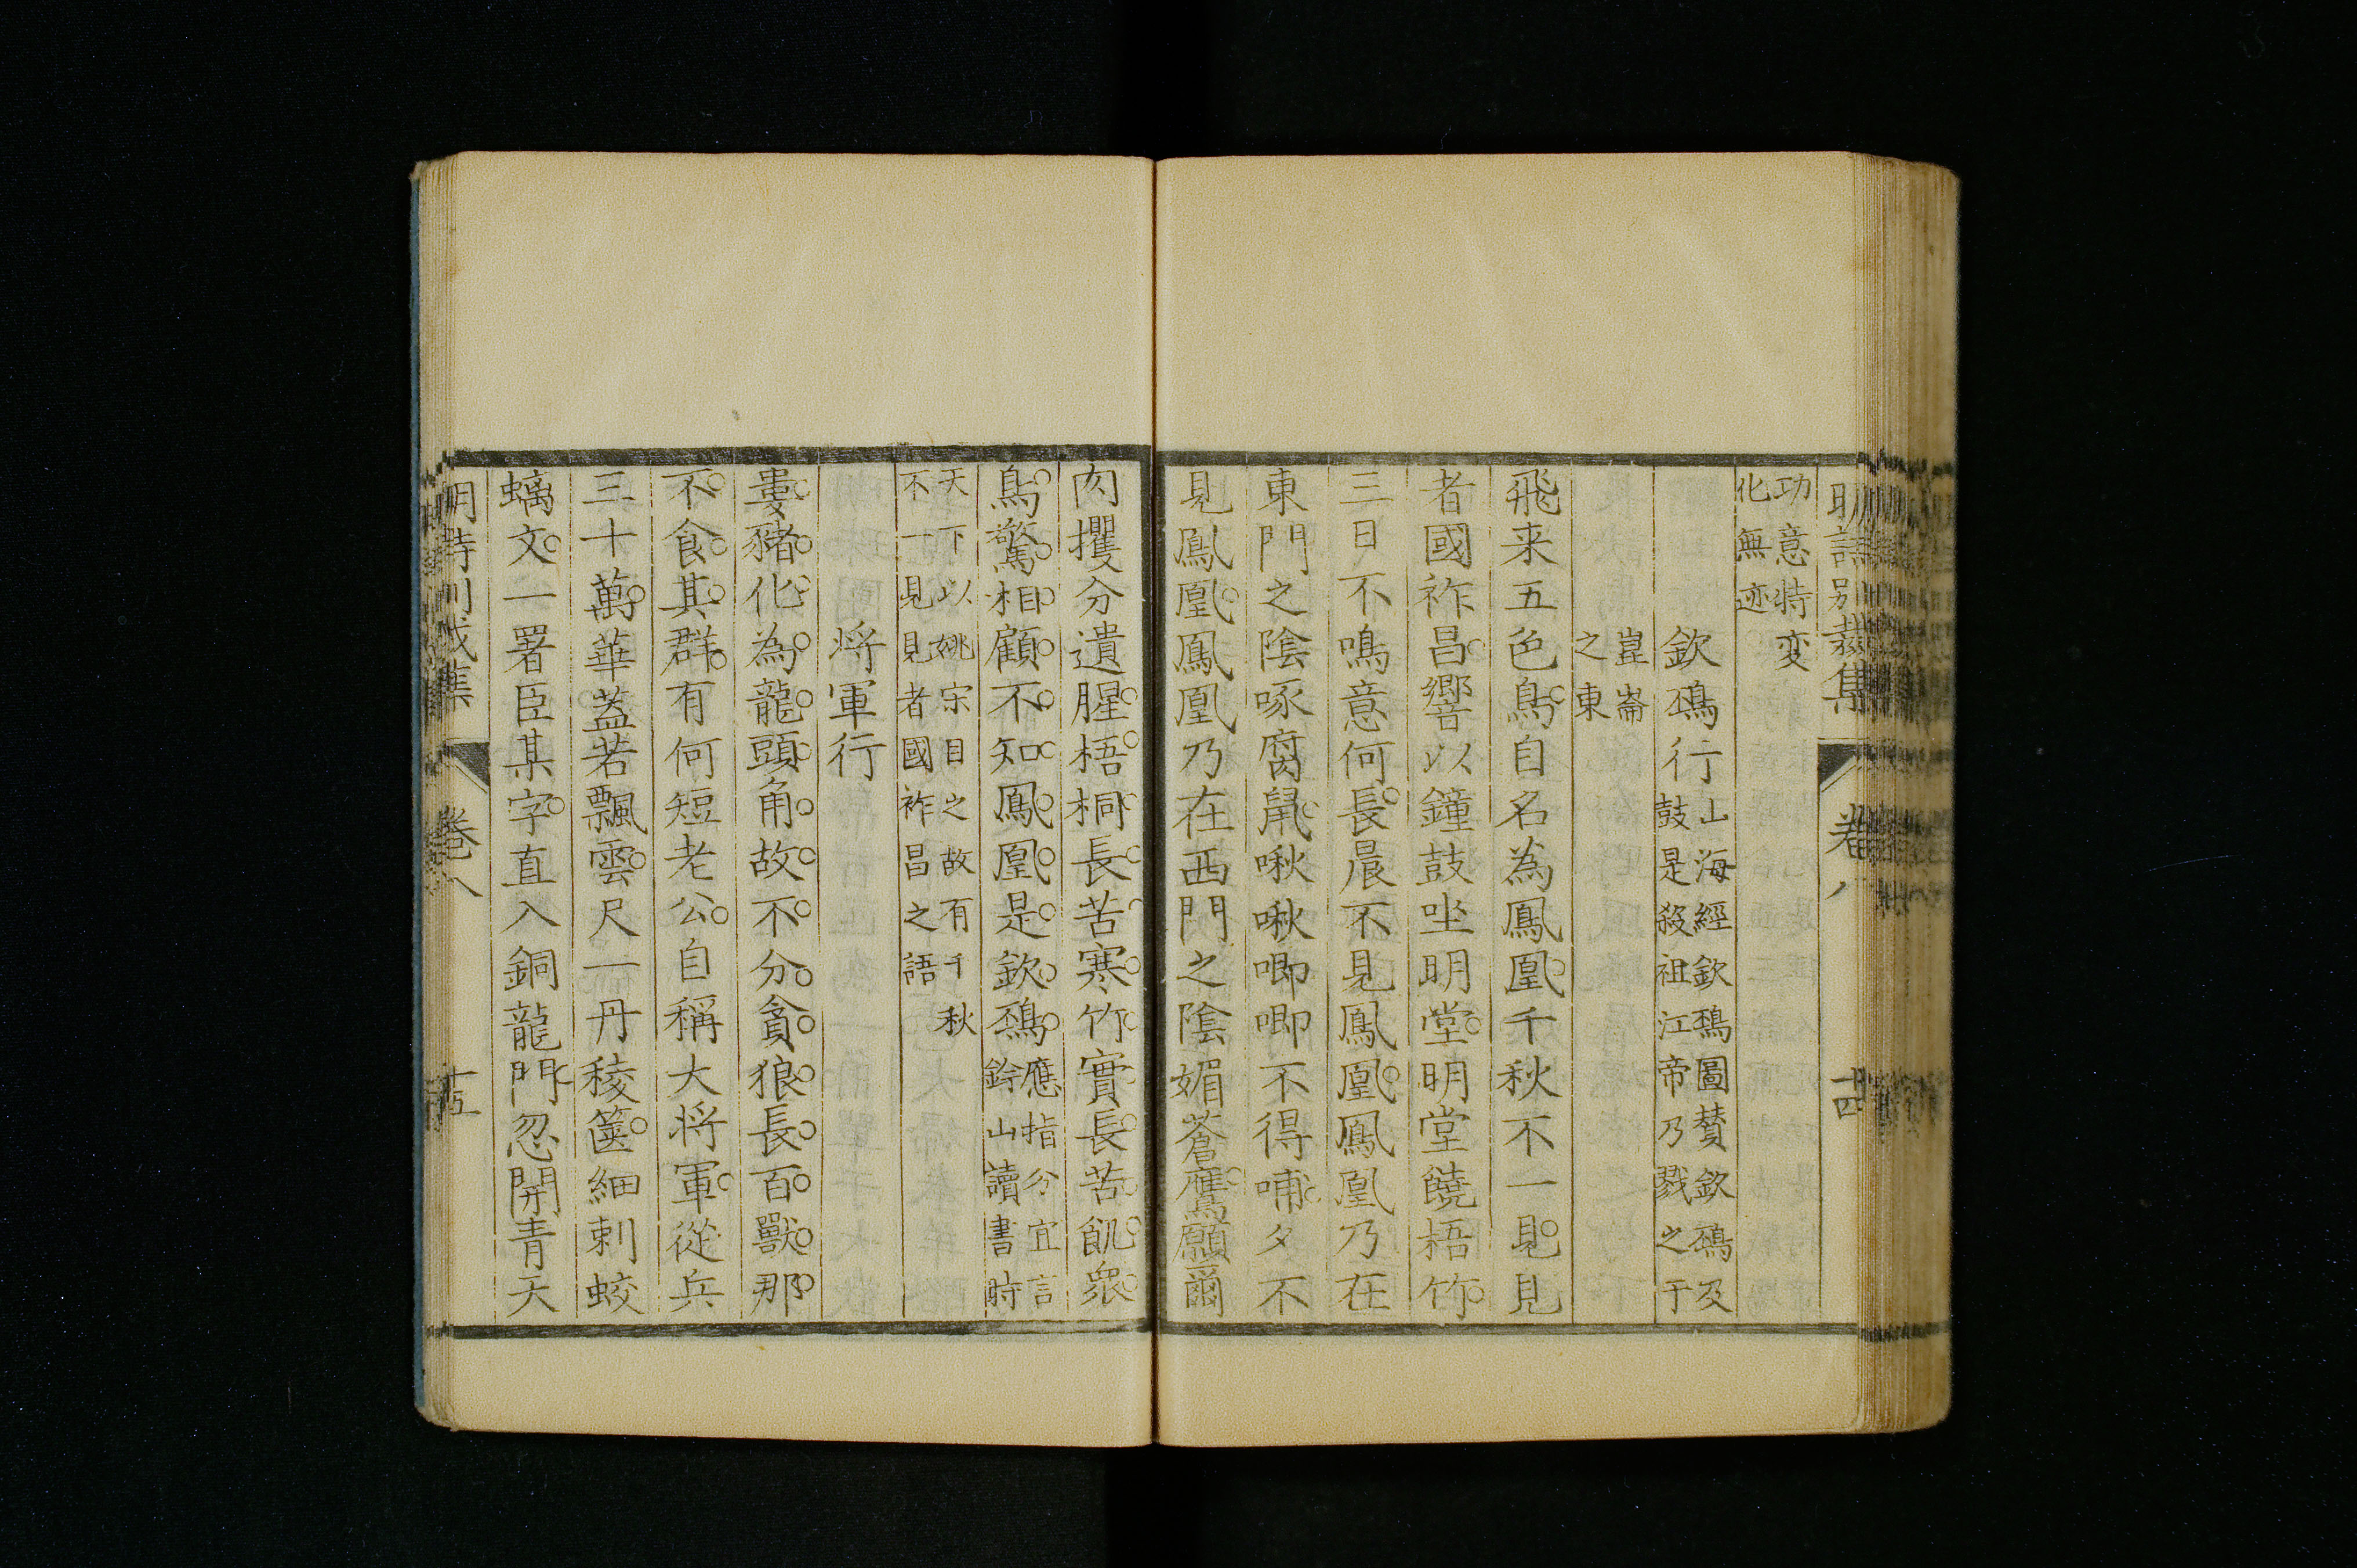 明詩別裁集 卷八 十四
功意特変
化無迹
欽䲹行 山海經欽䲹圖賛欽䲹及
鼓是殺祖江帝乃戮之于
崑崙
之東
飛来五色鳥自名為鳳凰千秋不一見見
者國祚昌響以鐘鼓坐明堂明堂饒梧竹
三日不鳴意何長晨不見鳳凰鳳凰乃在
東門之陰啄腐鼠啾啾唧唧不得哺夕不
見鳳凰鳳凰乃在西門之陰媚蒼鷹願爾
肉攫分遺腥梧桐長苦寒竹實長苦飢衆
鳥驚相顧不知鳳凰是欽䲹 應指分宜言
鈐山讀書時
天下以姚宋目之故有千秋
不一見見者國祚昌之語
将軍行
婁豬化為龍頭角故不分貪狼長百獸那
不食其群有何短老公自稱大将軍從兵
三十萬華蓋若飄雲尺一丹稜篋細刺蛟
螭文一署臣某字直入銅龍門忽開青天
明詩別裁集 卷八 十五